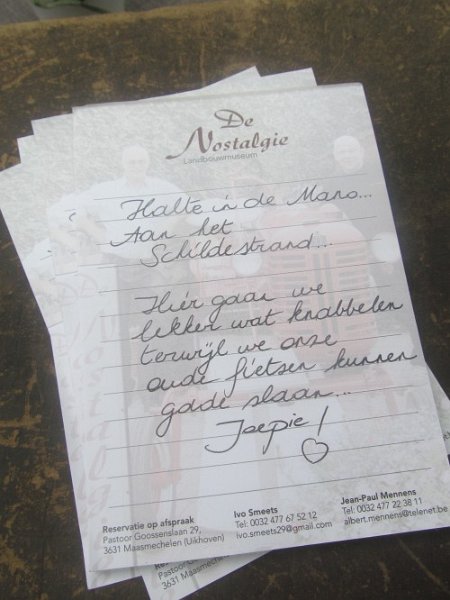 De
Nostalgie
Landbouwmuseum
Halte in de Mano...
Aan het
Schildestrand...
Hier gaan we
lekker wat knabbelen
terwijl we onze
oude fietsen kunnen
gade slaan...
Joepie!
Reservatie op afspraak
Pastoor Goossenslaan 29,
3631 Maasmechelen (Uikhoven)
Ivo Smeets
Tel: 0032 477 67 52 12
ivo.smeets29@gmail.com
Jean-Paul Mennens
Tel: 0032 477 22 38 11
albert.mennens@telenet.be
Pastoor
3631 Maasmechelen